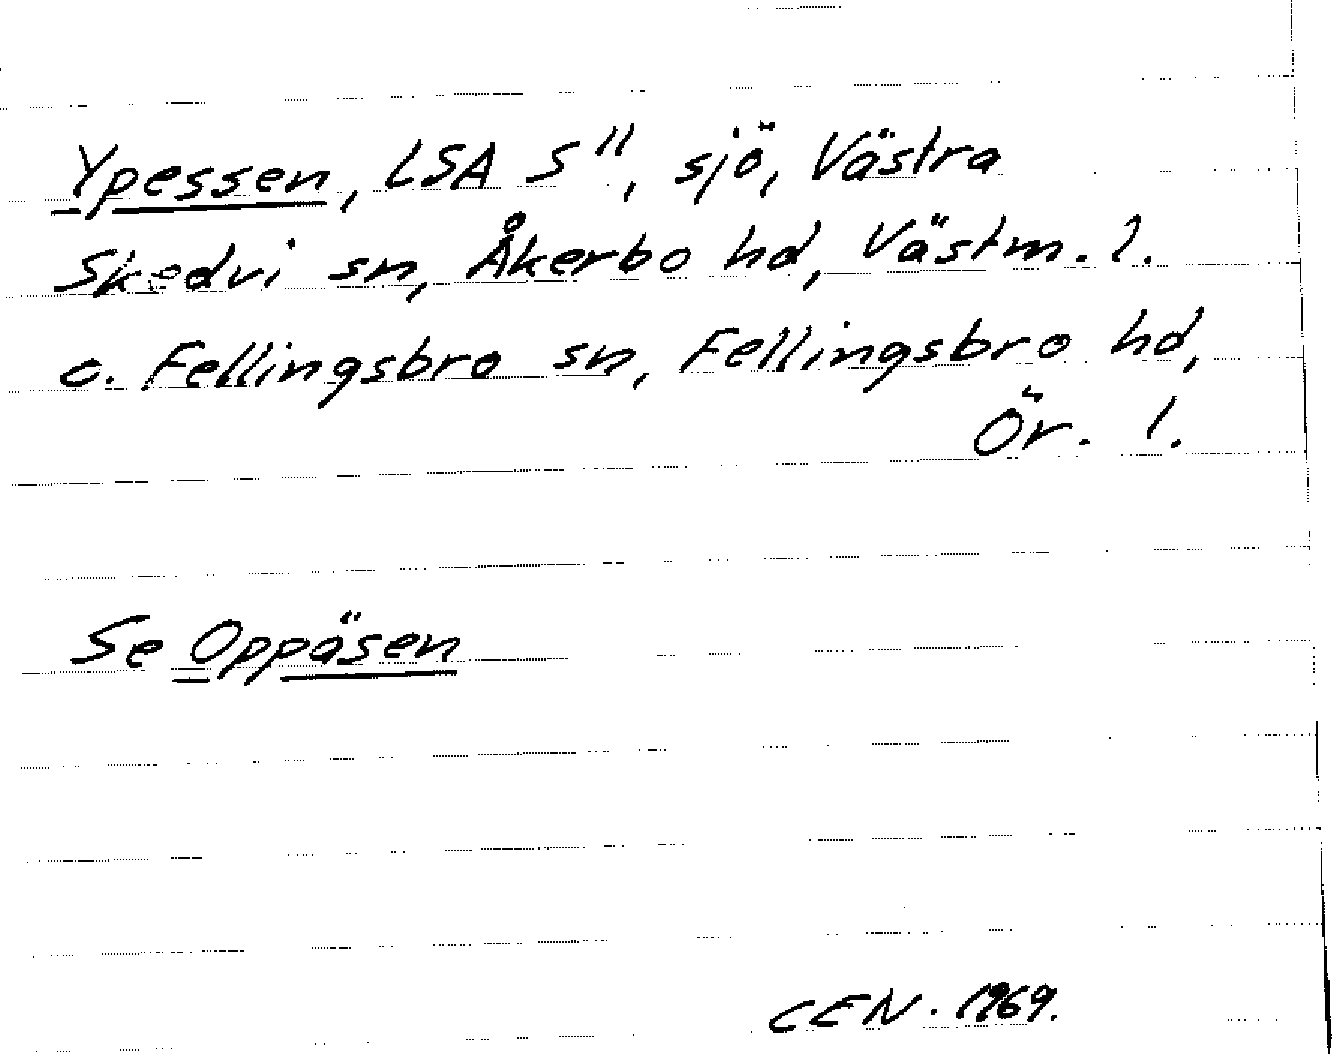 Ypessen, LSA S", sjö, Västra
Skedvi sn, Åkerbo hd, Västm. l.
o. Fellingsbro sn, Fellingsbro hd,
Ör. l.
Se Oppåsen
CEN. 1969.